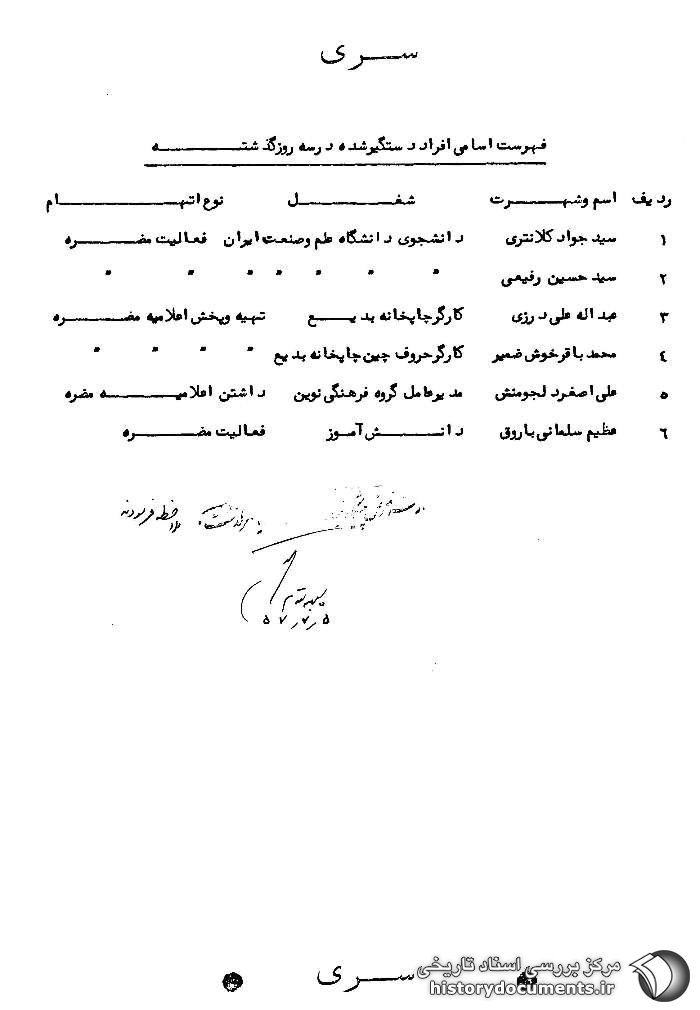 سری
فهرست اسامی افراد دستگیرشده درسه روزگذشته
ردیف اسم وشهرت شغل نوع اتهام
۱ سید جواد کلانتری دانشجوی دانشگاه علم وصنعت ایران فعالیت مضره
۲ سید حسین رفیعی " " " " " " "
۳ عبداله علی درزی کارگرچاپخانه بدیع تهیه وپخش اعلامیه مضره
۴ محمد باقرخوش ضمیر کارگرحروف چین چاپخانه بدیع " " " "
۵ علی اصغردلجومنش مدیرعامل گروه فرهنگی نوین داشتن اعلامیه مضره
۶ عظیم سلمانی باروق دانش آموز فعالیت مضره
ملاحظه فرمودند
۵۷
سری
مرکز بررسی اسناد تاریخی
historydocuments.ir